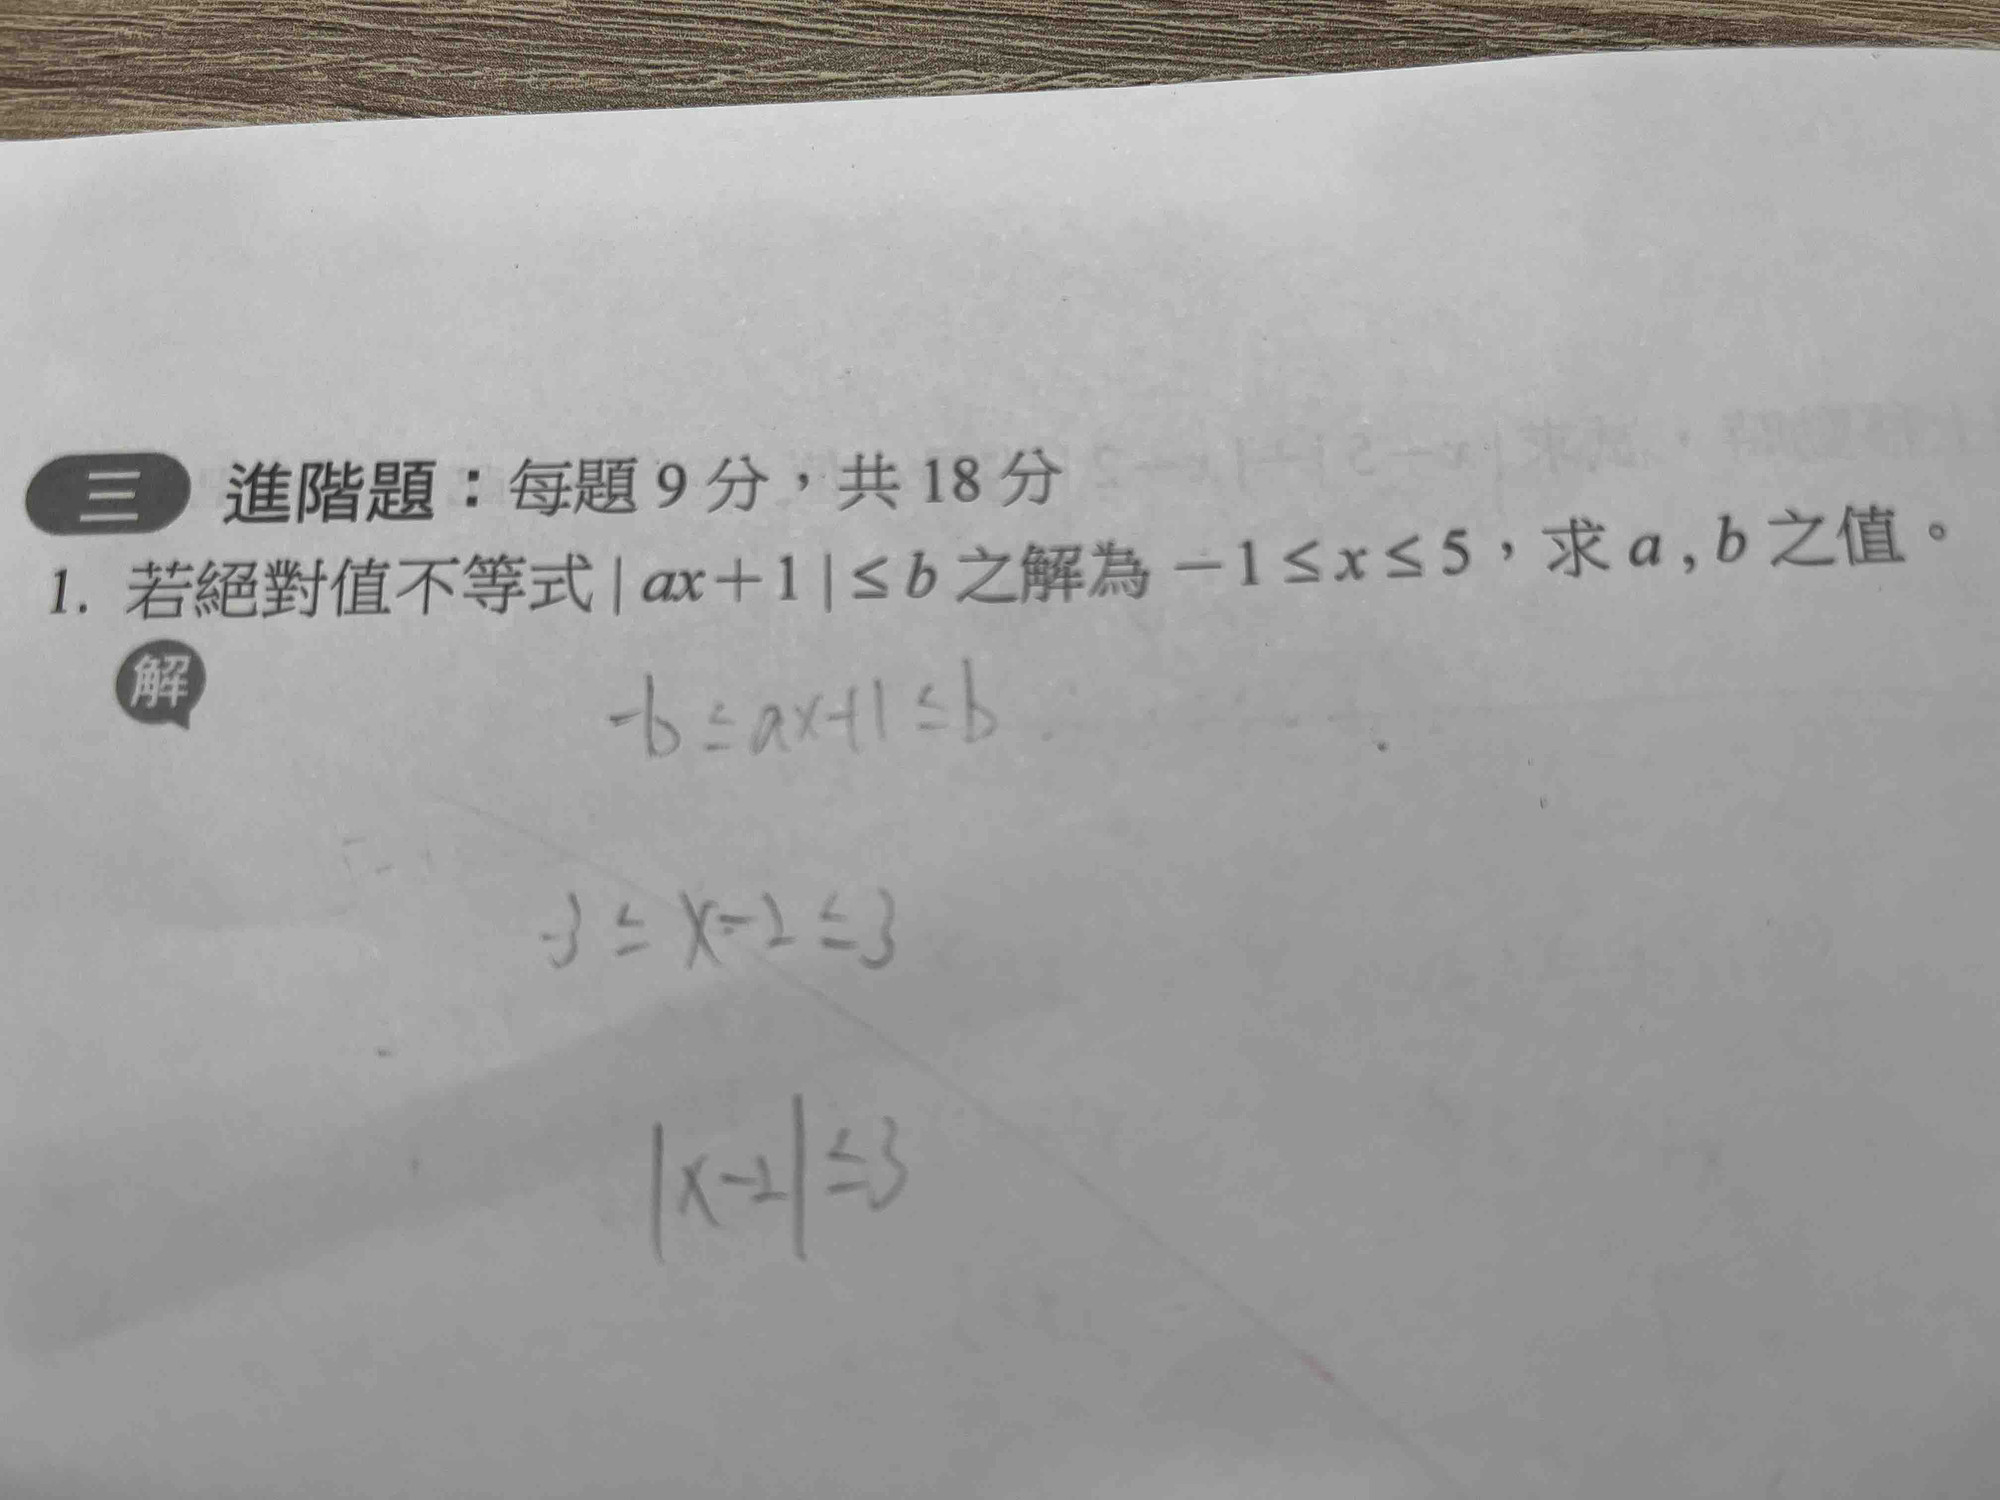 三 進階題：每題 9 分，共 18 分
1. 若絕對值不等式 | ax＋1 | ≤ b 之解為 －1 ≤ x ≤ 5，求 a , b 之值。
解
-b ≤ ax+1 ≤ b
-3 ≤ x-2 ≤ 3
|x-2| ≤ 3